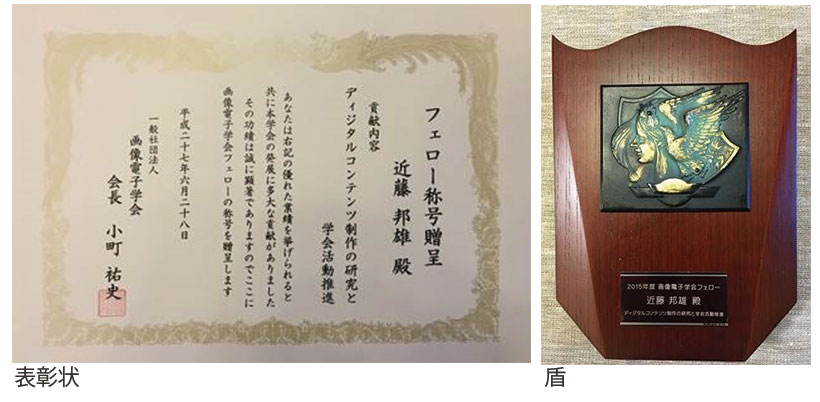 フェロー称号贈呈
近藤 邦雄 殿
貢献内容
ディジタルコンテンツ制作の研究と
学会活動推進
あなたは右記の優れた業績を挙げられると
共に本学会の発展に多大な貢献がありました
その功績は誠に顕著でありますのでここに
画像電子学会フェローの称号を贈呈します
平成二十七年六月二十八日
一般社団法人
画像電子学会
会長 小町 祐史
2015年度 画像電子学会フェロー
近藤 邦雄 殿
ディジタルコンテンツ制作の研究と学会活動推進
表彰状
盾